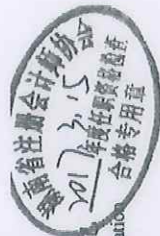 湖南省注册会计师协会
2017.3.15
年度任职资格检查
合格专用章